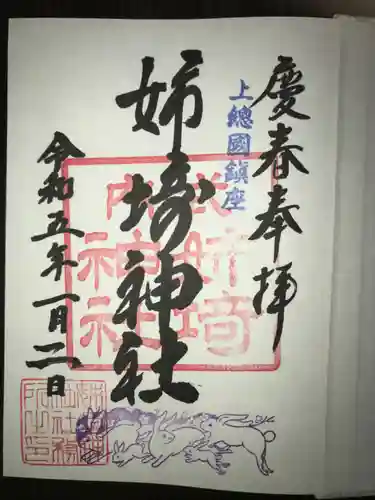 慶春奉拝
上總國鎮座
姉埼神社
令和五年一月二日